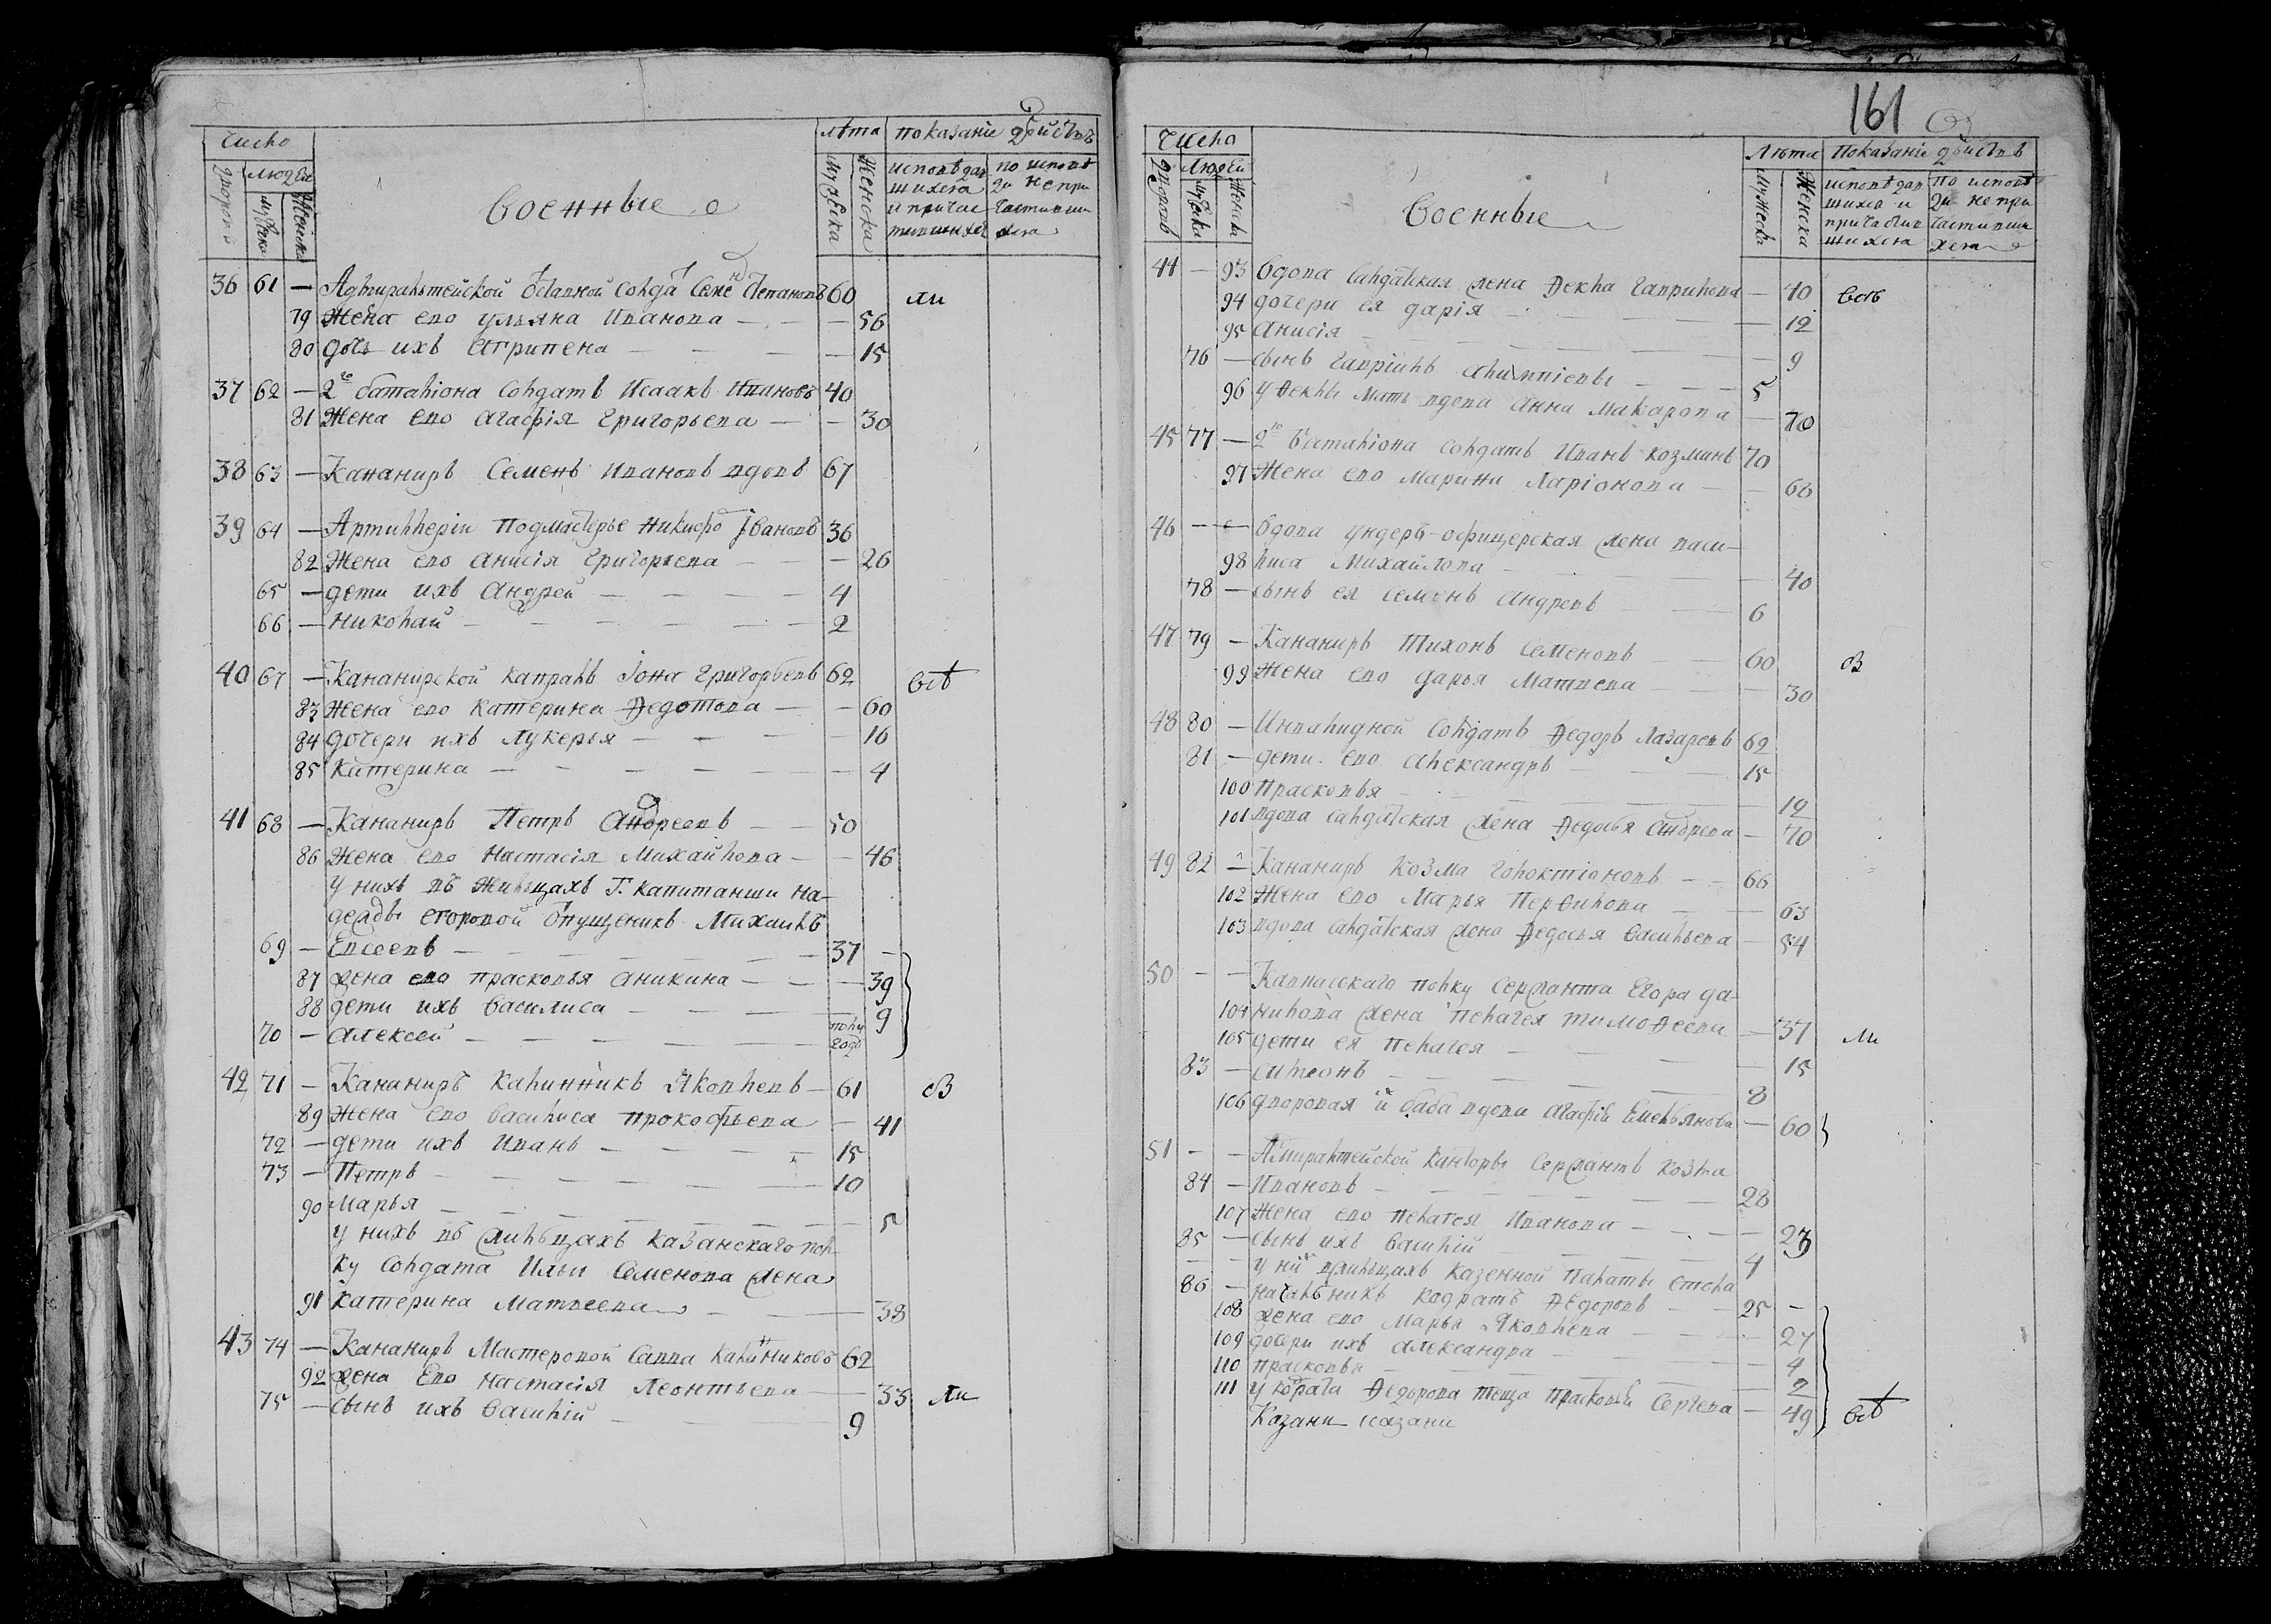 Число
лѣта показаніе дѣйствъ
дворовъ людей
мужеска женска
Военные
мужеска женска
исповѣдав по исповѣ
шихся ди непри
и причас частивши
тившихся хся
36 61 — Адмиралтейской отставной солдат Семен Степановъ 60 ли
79 Жена ево ульяна Иванова — — — 56
80 дочь ихъ Агрипена — — — 15
37 62 — 2го баталiона Солдатъ Исаакъ Ивановъ 40
81 Жена ево агафія Григорьева — — 30
38 63 — Кананиръ Семенъ Ивановъ вдовъ 67
39 64 — Артиллеріи подмастерье никифо Івановъ 36
82 Жена ево анисія Григорьева — — — 26
65 — дети ихъ Андрей — — — — 4
66 — николай — — — — — 2
40 67 — Кананирской капралъ Іона григорьевъ 62 всѣ
83 жена ево катерина Ѳедотова — — 60
84 дочери ихъ лукерья — — — — 16
85 катерина — — — — — — 4
41 68 — Кананиръ Петръ Андреевъ — — 50
86 Жена ево Настасія Михайлова — — 46
у нихъ въ живьцахъ Г. капитанши на-
дежды егоровой отпущеникъ Михаилъ
69 — Евсеевъ — — — — — 37 —
87 жена ево прасковья аникина — — — 39
88 дети ихъ Василиса — — — — 9
70 — Алексей — — — — — полу
году
42 71 — Кананиръ калинникъ Яковлевъ — 61 оВ
89 Жена ево василиса прокофьева — 41
72 — дети ихъ Иванъ — — — — 15
73 — Петръ — — — — — 10
90 Марья — — — — — — 5
у нихъ въ жильцахъ казанскаго пол-
ку Солдата Ильи Семенова жена
91 катерина Матвеева — — — 38
43 74 — Кананиръ Мастеровой Савва Калинниковъ 62
92 жена Ево настасія Леонтьева — — 33 ли
75 — сынъ ихъ Василій — — — 9
161
Число
Лѣта Показаніе дѣйствъ
дворовъ Людей
мужеска Женска
Военные
мужеска Женска
исповѣдав по исповѣ
шихся и ди не при
причастив частивши
шихся хся
44 — 93 Вдова Салдатская жена Ѳекла Гаврилова — 40 всѣ
94 дочери ея дарія — — — 12
95 Анисія — — — — — 9
76 — сынъ Гавріилъ — — — 5
96 у Ѳеклы мать вдова Анна Макарова — 70
45 77 — 2го баталiона солдатъ Иванъ козминъ 70
97 Жена ево Марина Ларіонова — — 68
46 — — Вдова ундеръ-офицерская жена васи-
98 лиса Михайлова — — — 40
78 — сынъ ея семенъ андревъ — — 6
47 79 — Кананиръ Тихонъ Семеновъ — 60 оВ
99 Жена ево дарья Матвева — — 30
48 80 — Инвалидной Солдатъ Ѳедоръ Лазаревъ 62
81 — дети ево александръ — — 15
100 Прасковья — — — — 12
101 вдова салдатская жена Ѳедосья Андрева — 70
49 82 — Кананиръ Козма Голоктіоновъ — — 66
102 Жена ево Марья Перѳилова — — 63
103 вдова салдатская жена Ѳедосья Васильева — 54
50 — — полку сержанта Егора да-
104 нилова жена пелагея тимоѳеева — 37 ли
105 дети ея пелагея — — — 15
83 — — — — 8
106 дворовая их баба вдова агафія Емельянова — 60
51 — — Адмиралтейской канторы Сержантъ козма
84 — Ивановъ — — — — 28
107 Жена ево пелагея Иванова — — — 23
85 — сынъ ихъ Василій — — — 4
— — у них вжильцахъ казенной палаты стола
86 — начальникъ кодратъ Ѳедоровъ — — 25 —
108 жена ево Марья Яковлева — — 27
109 дочери ихъ александра — — 4
110 прасковья — — — 2
111 у кодрата Ѳедорова теща прасковья Сергева — 49 всѣ
Казани казани